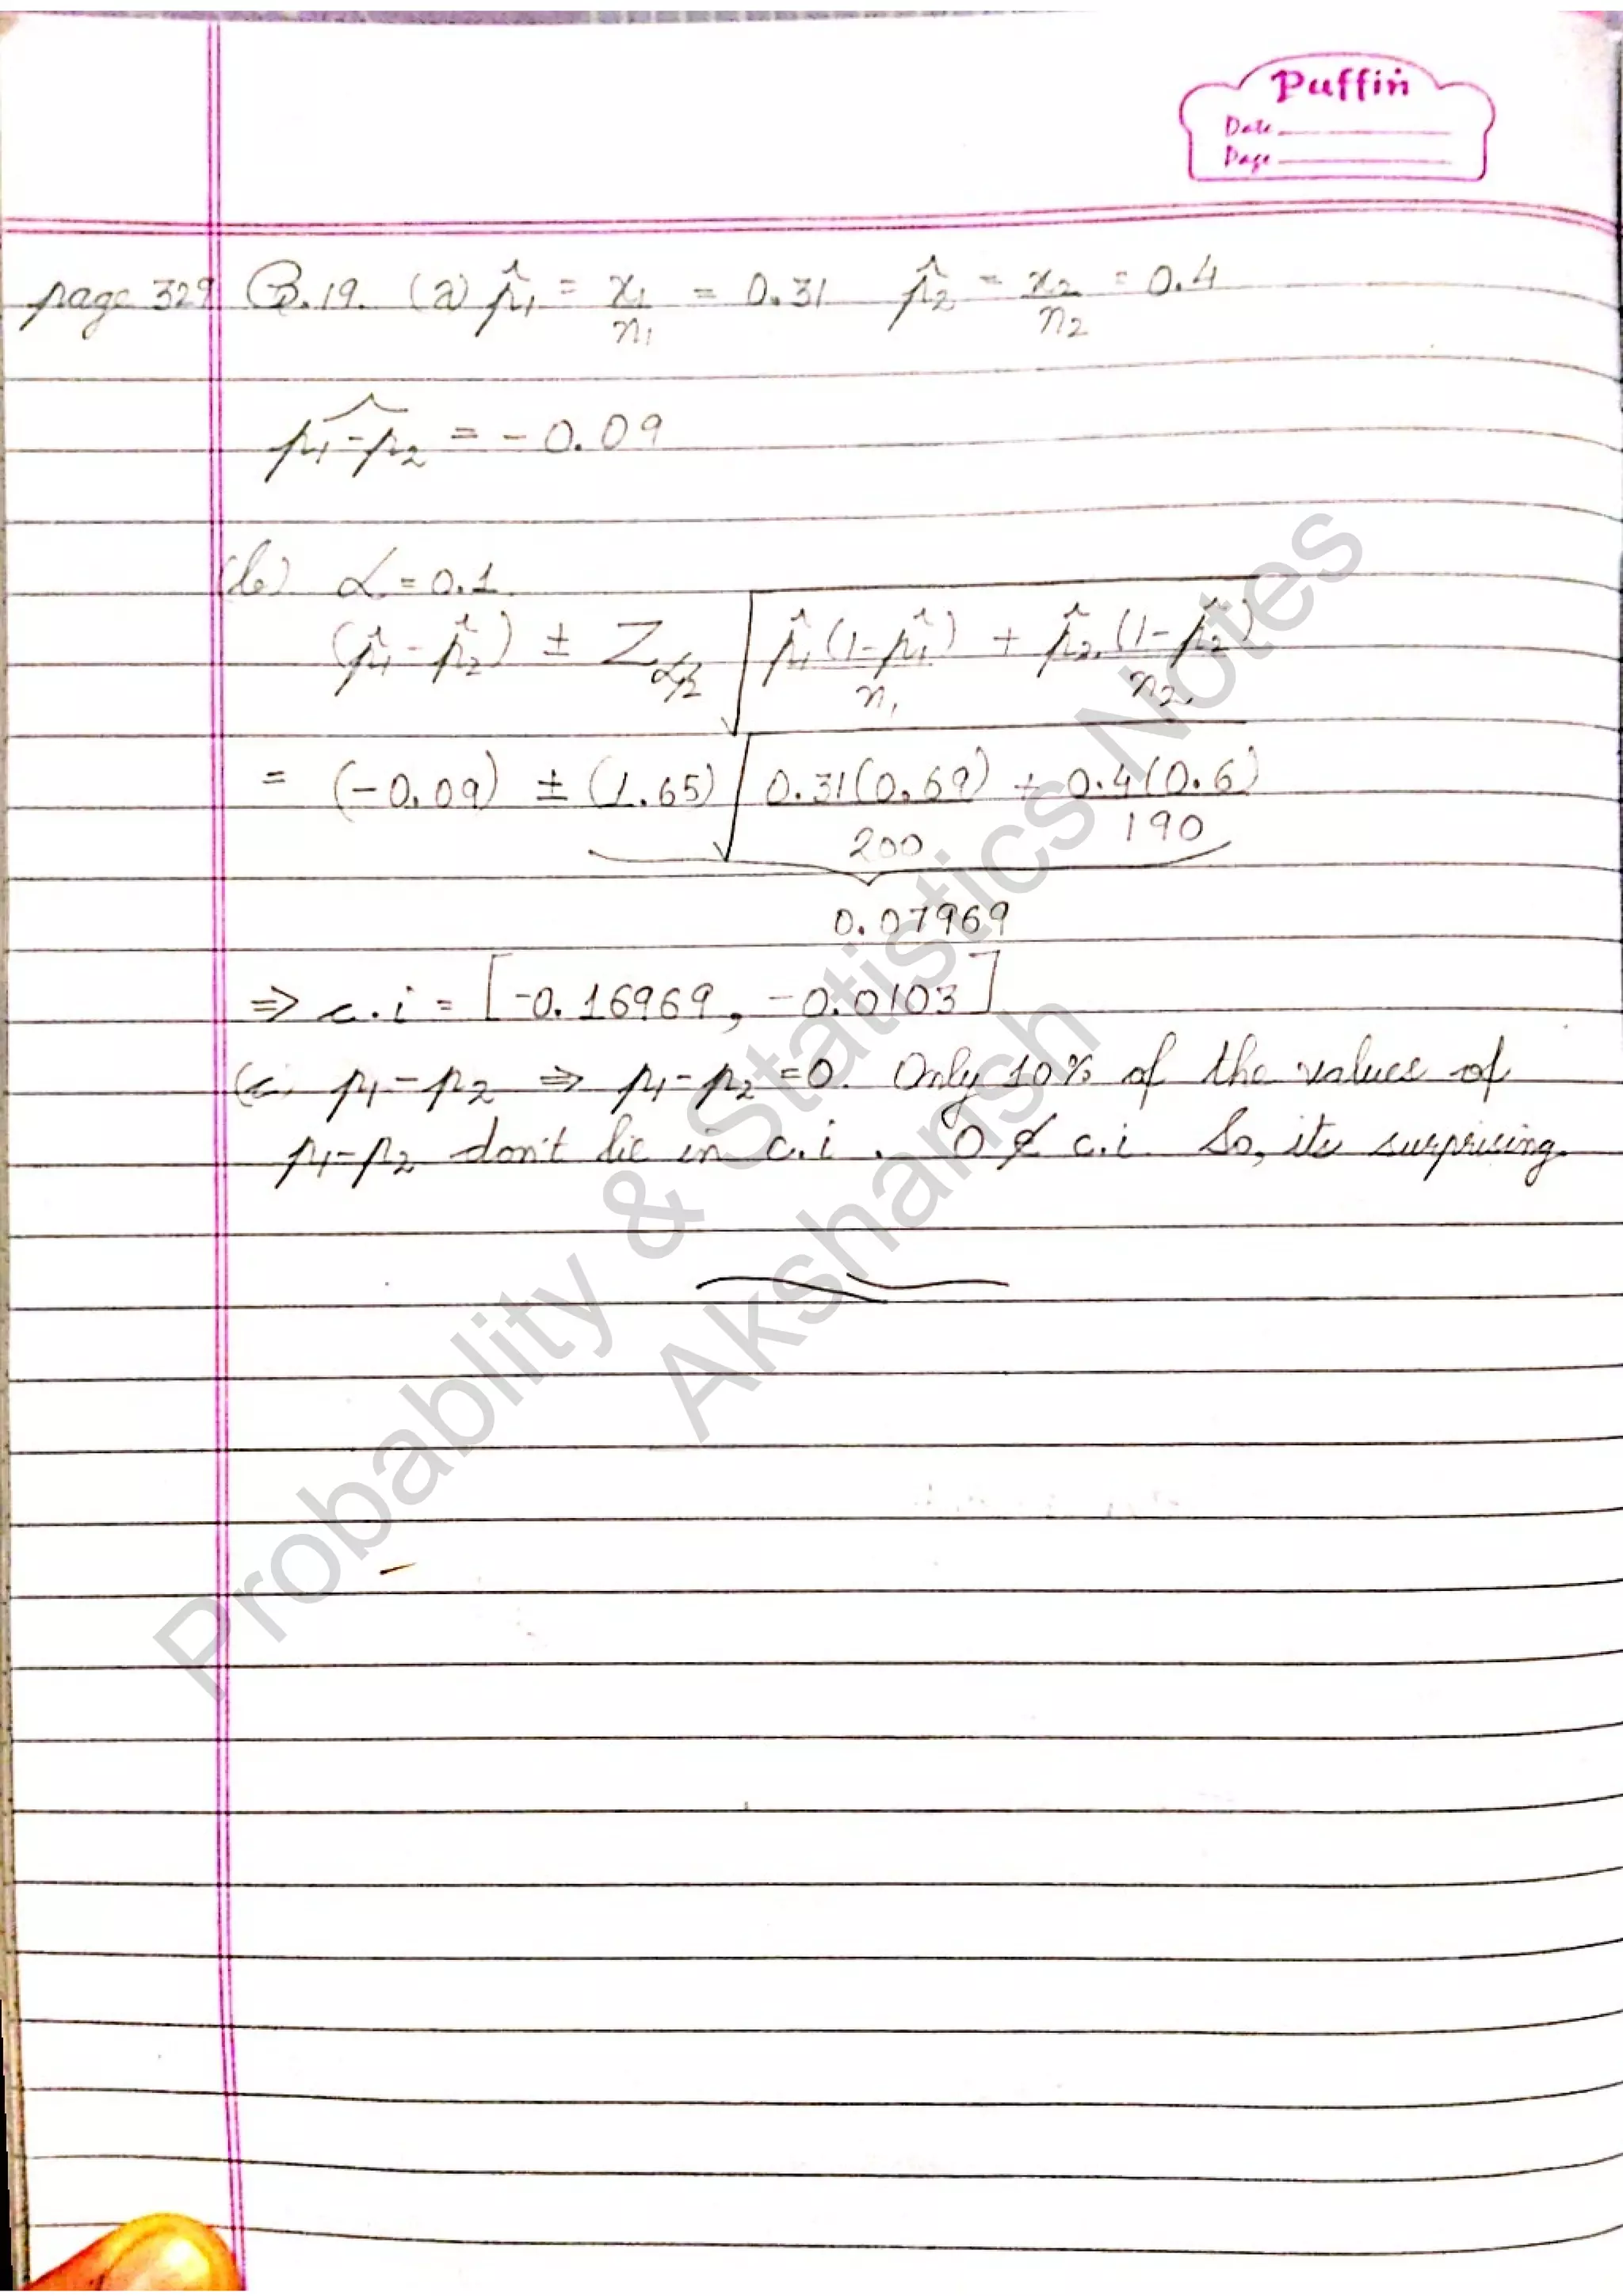 Puffin
Date
Page
page 329 Q.19. (a) p̂₁ = x₁/n₁ = 0.31 p̂₂ = x₂/n₂ = 0.4
p₁-p₂^ = -0.09
(b) α = 0.1
(p̂₁ - p̂₂) ± Z_α/2 √(p̂₁(1-p̂₁)/n₁ + p̂₂(1-p̂₂)/n₂)
= (-0.09) ± (1.65) √(0.31(0.69)/200 + 0.4(0.6)/190)
0.07969
⇒ c.i = [-0.16969, -0.0103]
(c) p₁-p₂ ⇒ p₁-p₂ =0. Only 10% of the values of
p₁-p₂ don't lie in c.i. 0 ∉ c.i. So, its surprising.
Probablity & Statistics Notes
Akshansh